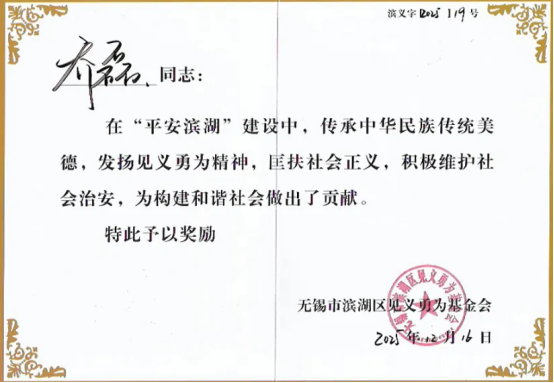 滨义字 2025 119 号
乔磊 同志：
在“平安滨湖”建设中，传承中华民族传统美
德，发扬见义勇为精神，匡扶社会正义，积极维护社
会治安，为构建和谐社会做出了贡献。
特此予以奖励
无锡市滨湖区见义勇为基金会
2025 年 12 月 16 日
无锡市滨湖区见义勇为基金会